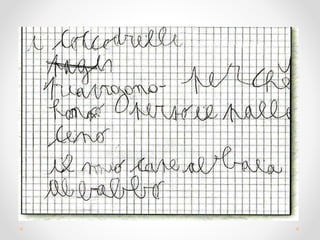 i coccodrilli
piangono perchè
hanno perso le palle
ceno
il mio cane abbaia
al babbo